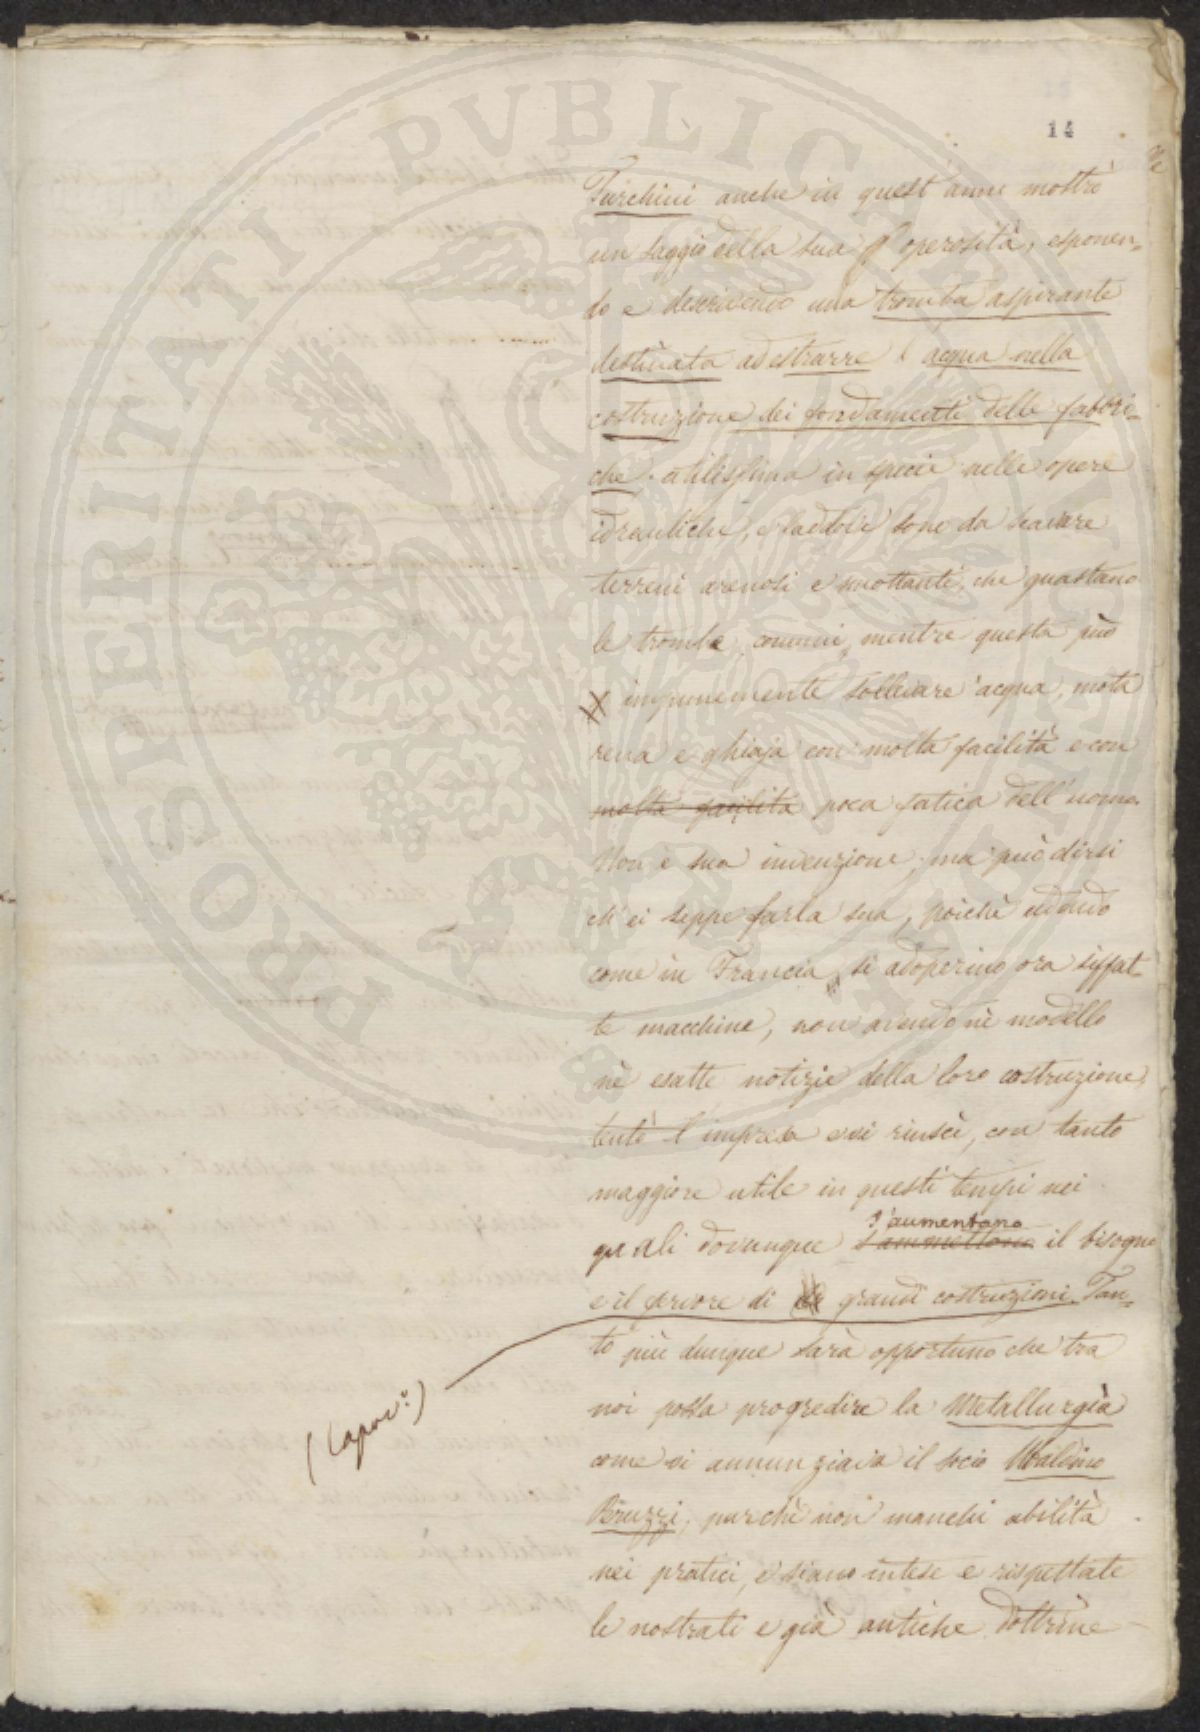 14
Turchini anche in quest'anno mostrò
un saggio della sua operosità, esponen-
do e descrivendo una tromba aspirante
destinata ad estrarre l'acqua nella
costruzione dei fondamenti delle fabbri-
che, utilissima in specie nelle opere
idrauliche, e laddove sono da scavare
terreni arenosi e smottanti, che guastano
le trombe comuni, mentre questa può
X impunemente sollevare acqua, mota
rena e ghiaja con molta facilità e con
molta facilità poca fatica dell'uomo.
Non è sua invenzione, ma può dirsi
ch'ei seppe farla sua, poichè udendo
come in Francia si adoperino ora siffat-
te macchine, non avendo nè modello
nè esatte notizie della loro costruzione,
tentò l'impresa e vi riuscì, con tanto
maggiore utile in questi tempi nei
s'aumentano
quali dovunque s'ammettono il bisogno
e il fervore di grandi costruzioni. Tan-
to più dunque sarà opportuno che tra
noi possa progredire la Metallurgia
come vi annunziava il socio
(Capov.º)
purchè non manchi abilità
nei pratici, e siano intese e rispettate
le nostrali e già antiche dottrine
PROSPERITATI PVBLICAE AVGENDAE